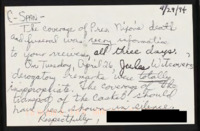 4/29/94
C-Span -
The coverage of Pres. Nixon's death
and funeral was very informative
to your viewers, all three days.
On Tuesday, April 26
derogatory remarks were totally
inappropriate. The coverage of the
transport of the casket should
have been shown in silence.
Respectfully,